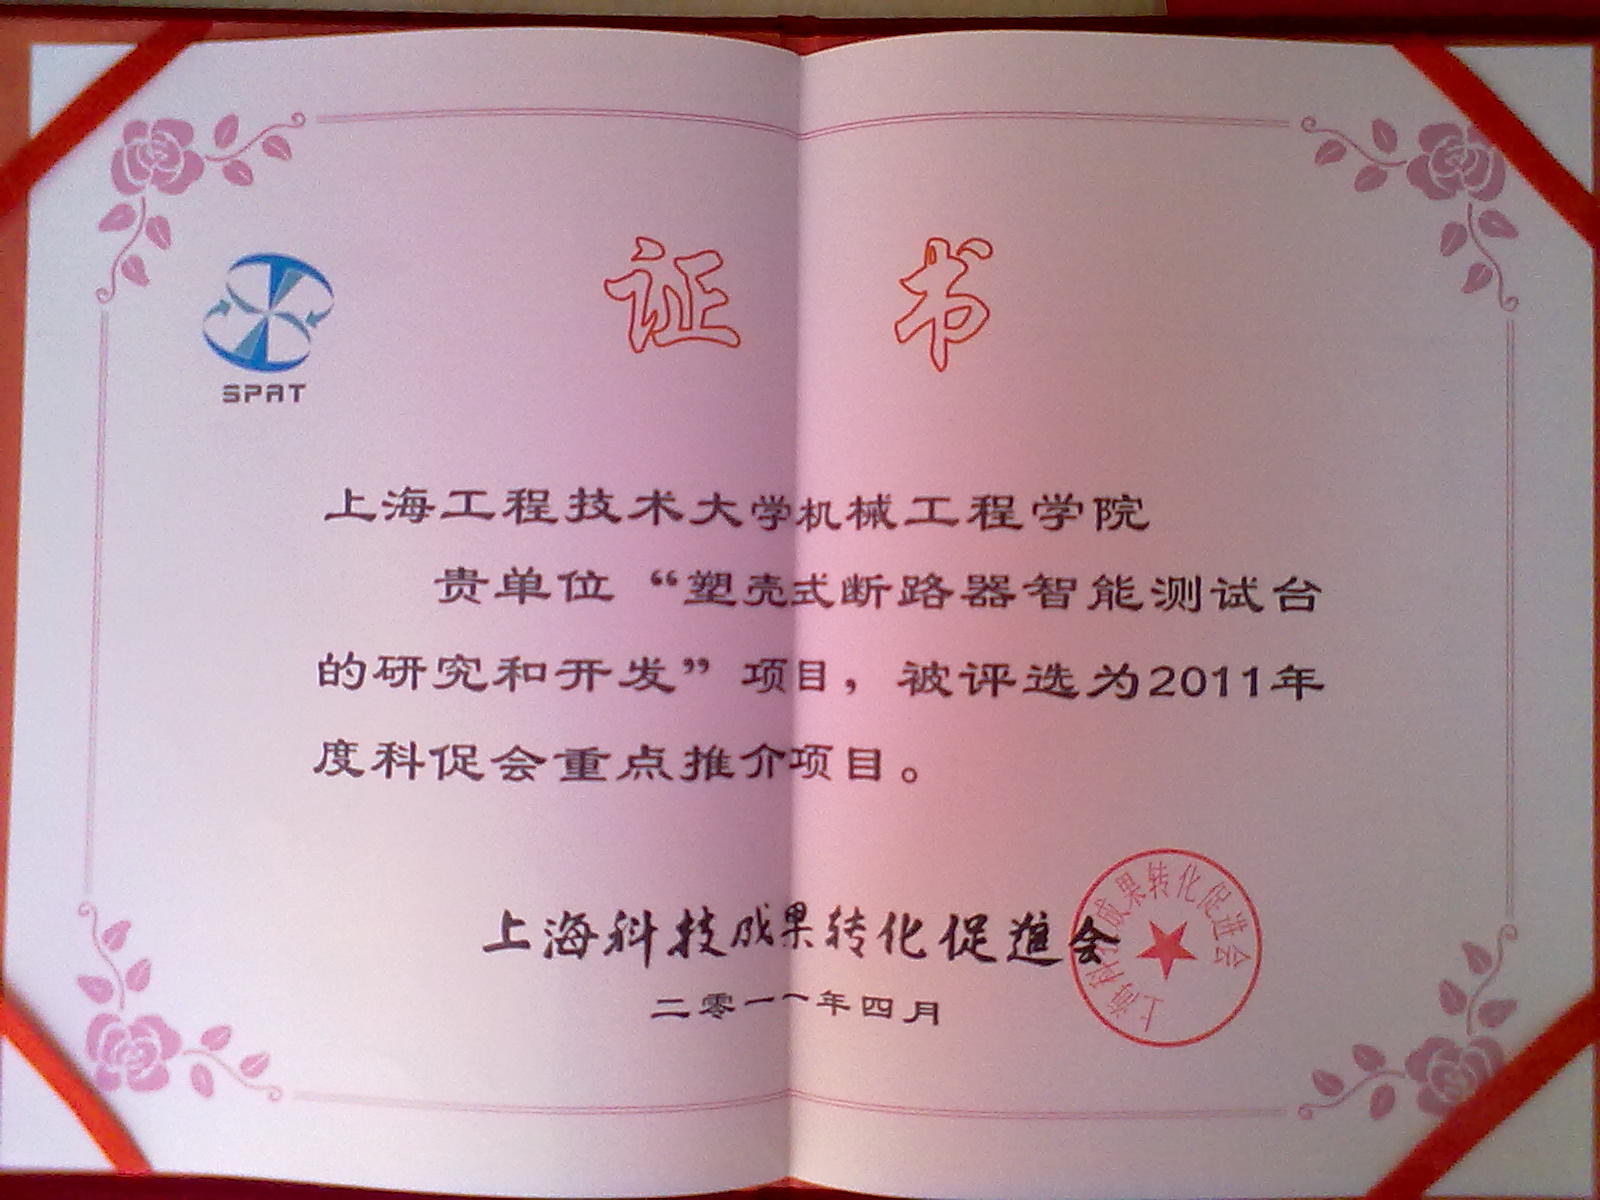 证 书
SPAT
上海工程技术大学机械工程学院
贵单位“塑壳式断路器智能测试台
的研究和开发”项目，被评选为2011年
度科促会重点推介项目。
上海科技成果转化促进会
二零一一年四月
上海科技成果转化促进会